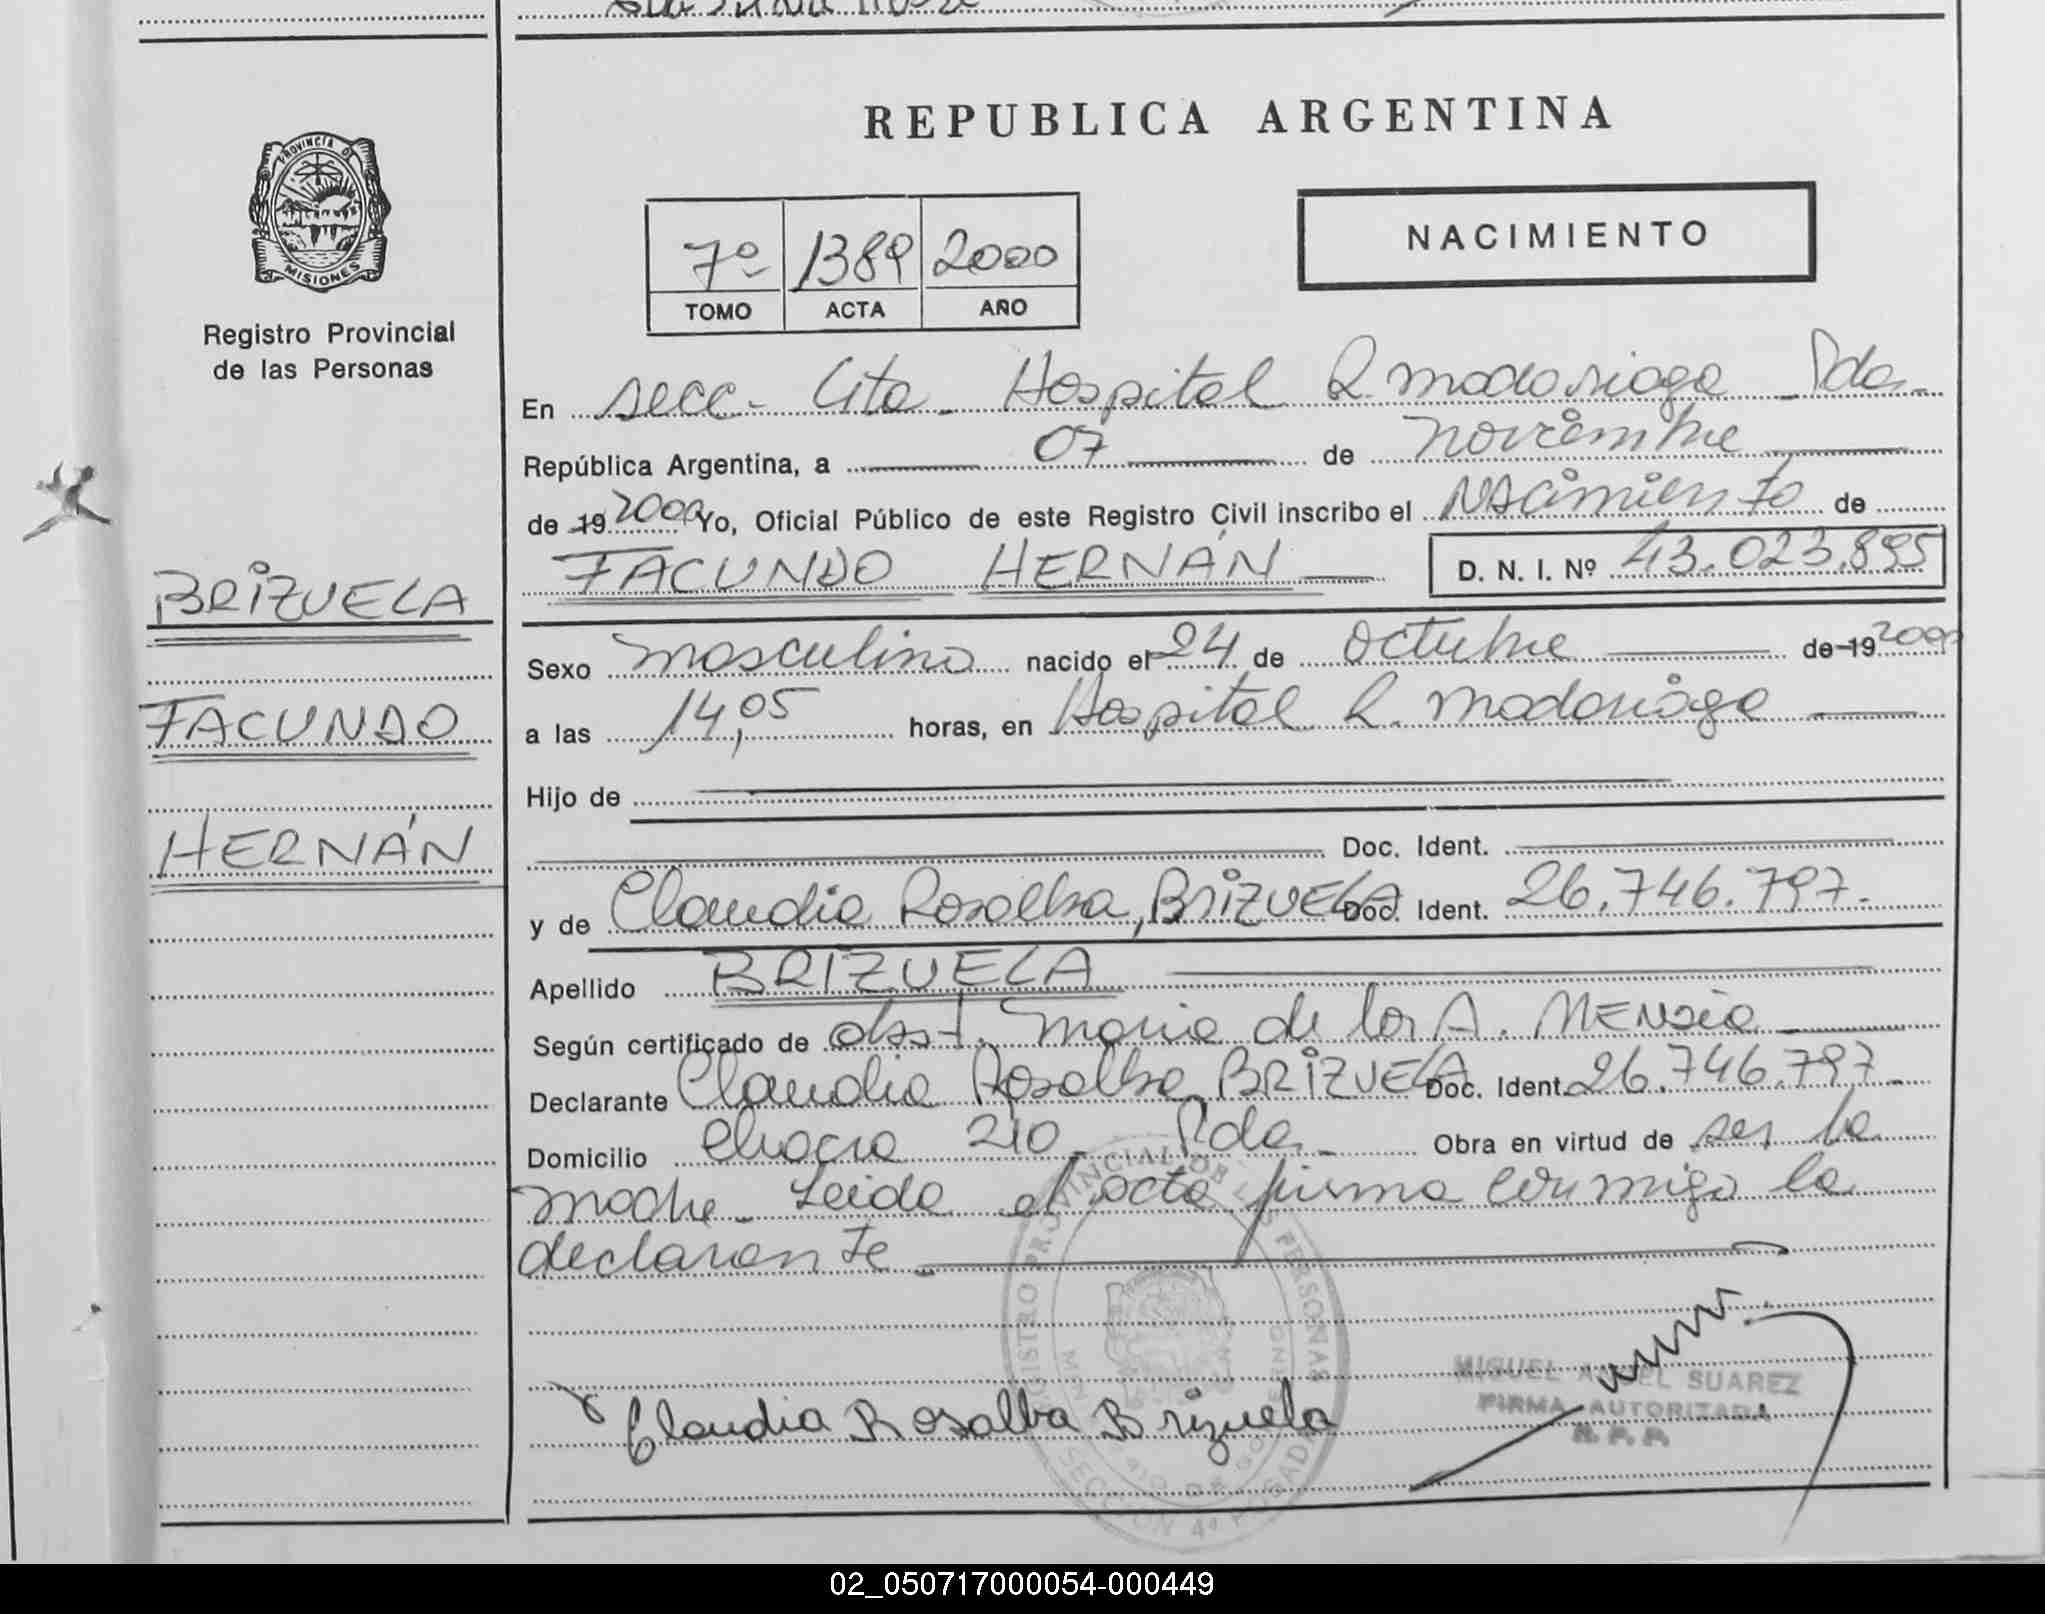 REPUBLICA ARGENTINA
PROVINCIA DE
MISIONES
Registro Provincial
de las Personas
7º 1389 2000
TOMO ACTA AÑO
NACIMIENTO
En secc. 4ta. Hospital R. Madariaga Pdas.
República Argentina, a 07 de Noviembre
de 19 2000 Yo, Oficial Público de este Registro Civil inscribo el Nacimiento de
FACUNDO HERNÁN D. N. I. Nº 43.023.895
BRIZUELA
FACUNDO
HERNÁN
Sexo masculino nacido el 24 de octubre de 19 2000
a las 14,05 horas, en Hospital R. Madariaga
Hijo de
Doc. Ident.
y de Claudia Rosalba, BRIZUELA Doc. Ident. 26.746.797.
Apellido BRIZUELA
Según certificado de obst. Maria de los A.
Declarante Claudia Rosalba BRIZUELA Doc. Ident. 26.746.797.
Domicilio 210 Pdas. Obra en virtud de ser la
madre. Leida el acta firma conmigo la
declarante
REGISTRO PROVINCIAL DE LAS PERSONAS
SECCION 4ª POSADAS
Claudia Rosalba Brizuela
MIGUEL ANGEL SUAREZ
FIRMA AUTORIZADA
R. P. P.
02_050717000054-000449